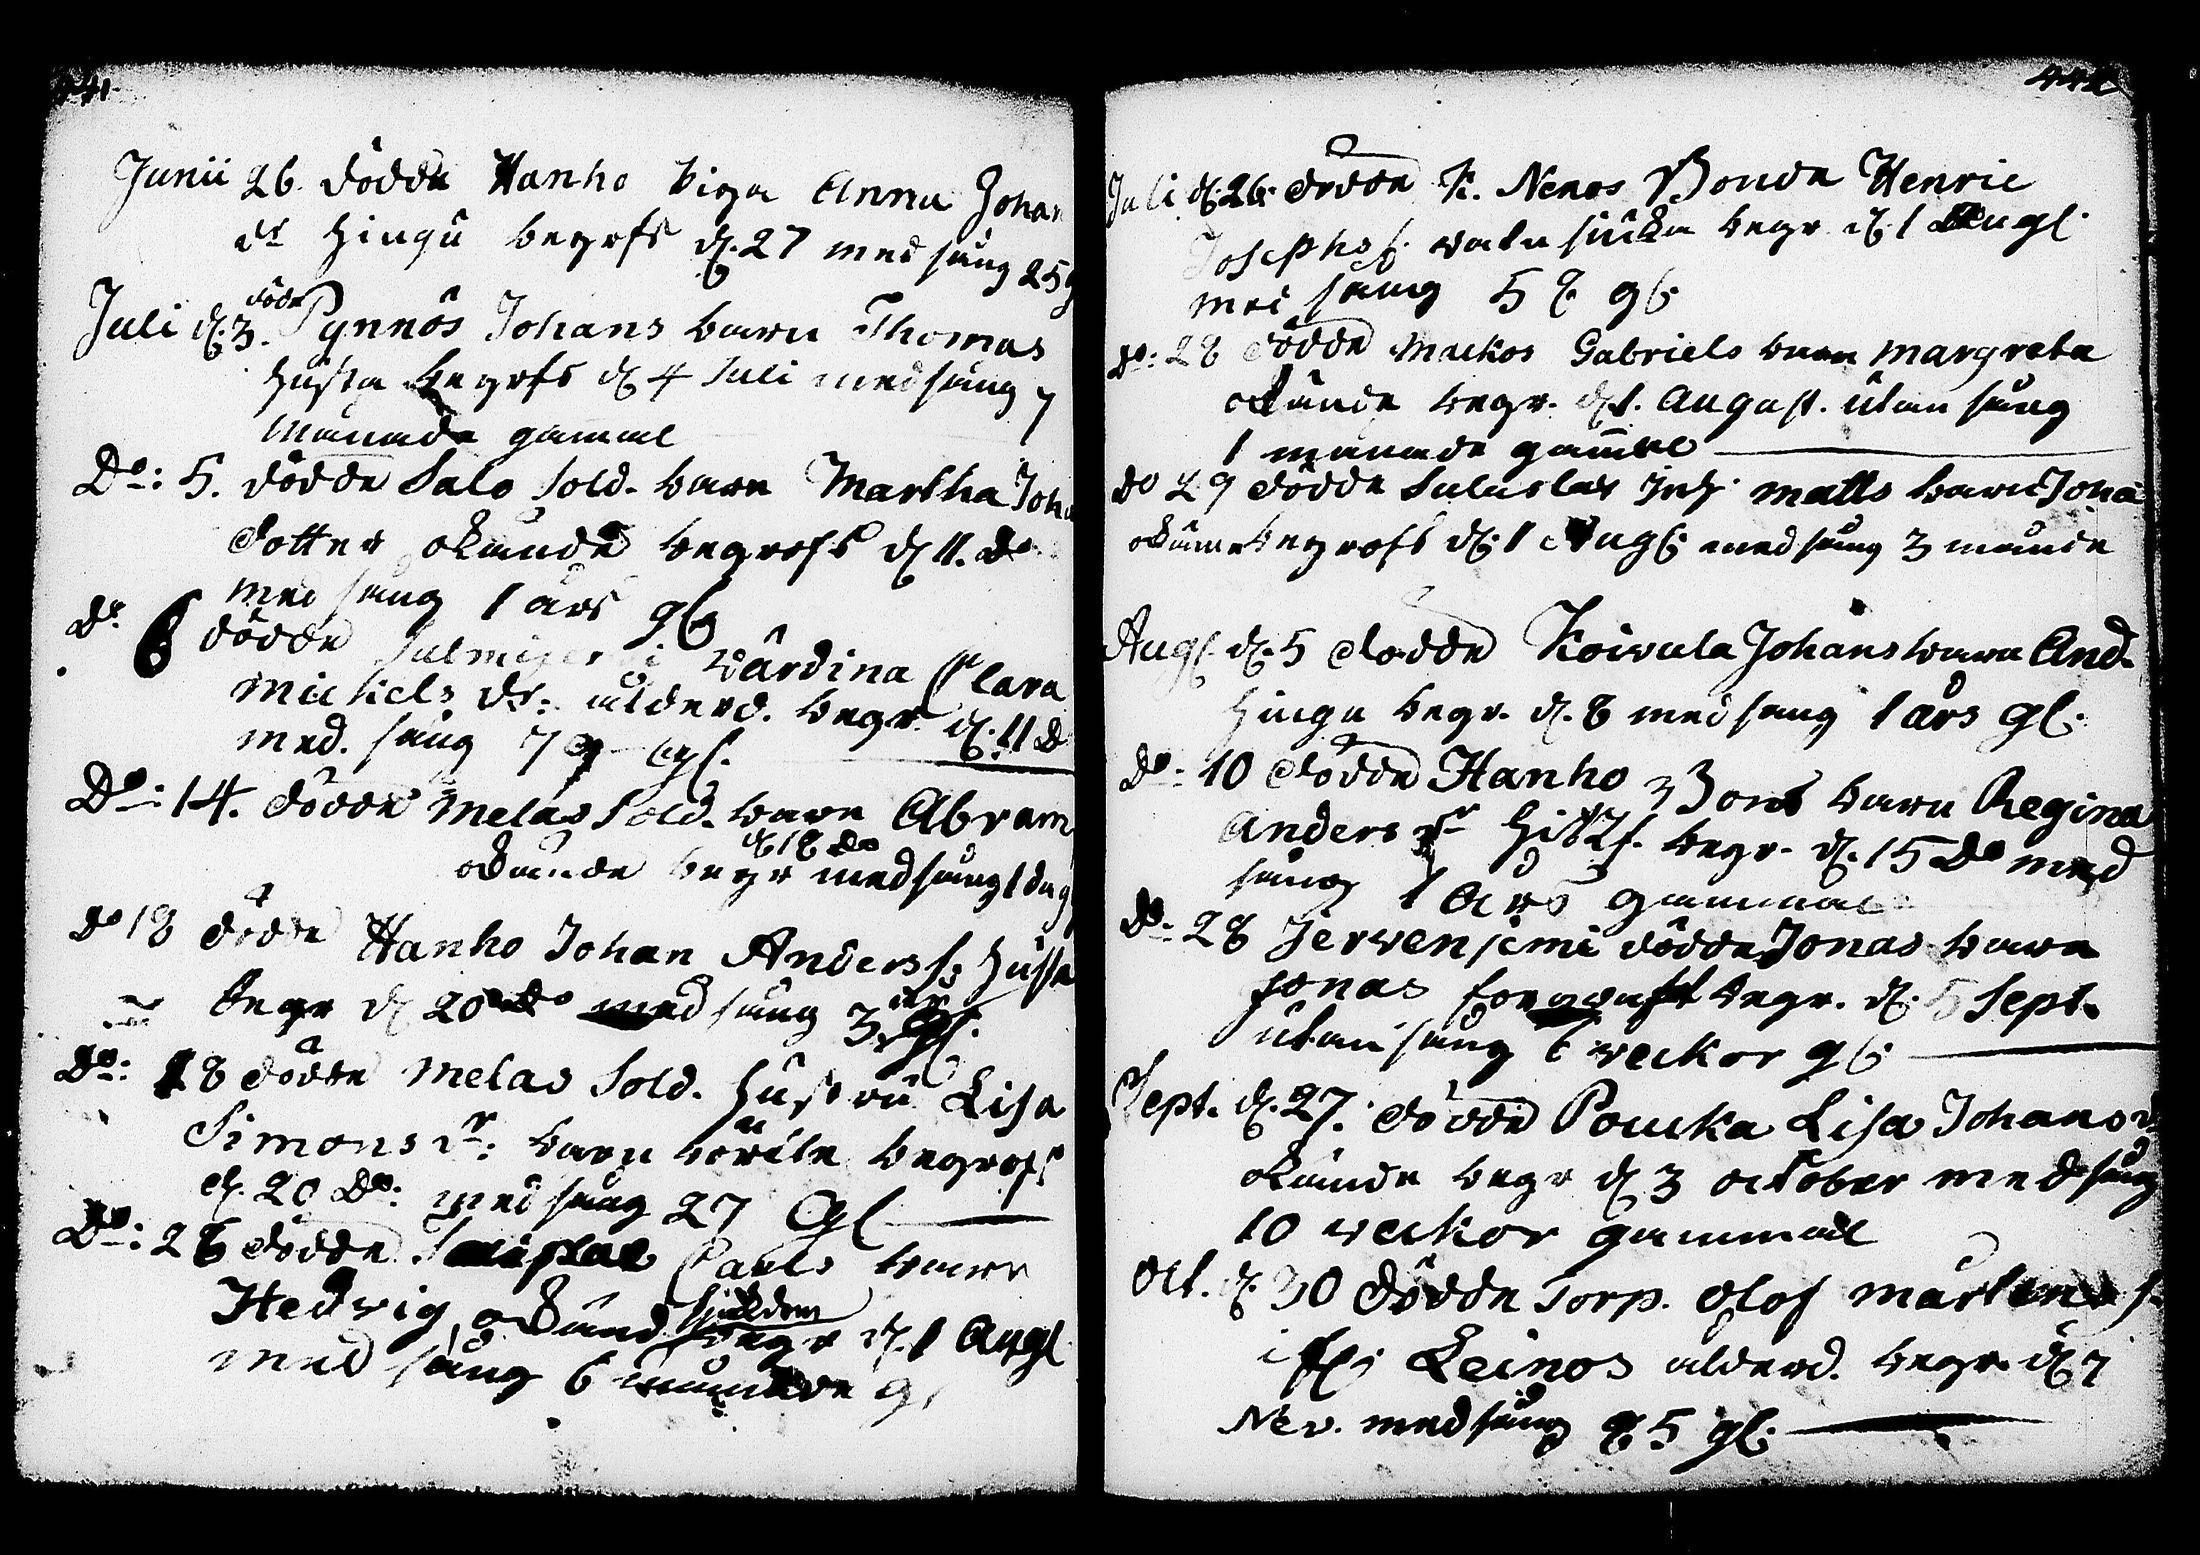 441.
Junii 26. dödde Hanho piga Anna Johans
dr hingu begrofs d. 27 med sång 25 g
dödde
Juli d. 3. Pynnös Johans barn Thomas
husta begrofs d 4 Juli med sång 7
Månade gammal
Do: 5. dödde Salo Sold. barn Martha Joh
dotter okände begrofs d 11. do
med sång 1 års gl.
do 6 dödde värdina Clara
Michels dr: ålderd. begr. d. 11 d
med. sång 79 gl.
Do: 14. dödde Melas Sold. barn Abram
d 18 do
okände begr med sång 1 dag
do 18 dödde Hanho Johan Anders s. husta
begr d 20 do med sång 3 år gl.
Do: 18 dödde Melas Sold. hustru Lisa
Simons dr: barn börden begrofs
d. 20 Do: med sång 27 gl
Do: 28 dödde Pauls barn
Hedwig okänd siukdom begr d. 1 Augl
med sång 6 månade g
442
Juli d. 26. dödde K. Nenos Bonde Henric
Josephs s. begr. d. 1 Augl.
med sång 58 gl.
do: 28 dödde Mackos Gabriels barn Margreta
okände begr. d 1. August. utan sång
1 månade gammal
do 29 dödde Matts barn Joha
okände begrofs d. 1 Augl. med sång 3 månde
Augl. d. 5 dödde Koivula Johans barn And.
hingu begr. d. 8 med sang 1 års gl.
do: 10 dödde Hanho Bonds barn Regina
Anders dr begr. d. 15 do med
sång 1 års gammal
do: 28 Jervensemi dödde Jonas barn
Jonas begr. d. 5 Sept.
utan sång 6 veckor gl.
Sept. d. 27. dödde Poucka Lisa Johans d
okände begr d 3 october med sång
10 veckor gammal
Oct. d. 30 dödde Torp. Olof Mårtens s.
Leinos ålderd. begr. d 7
Nov. med sång 85 gl.